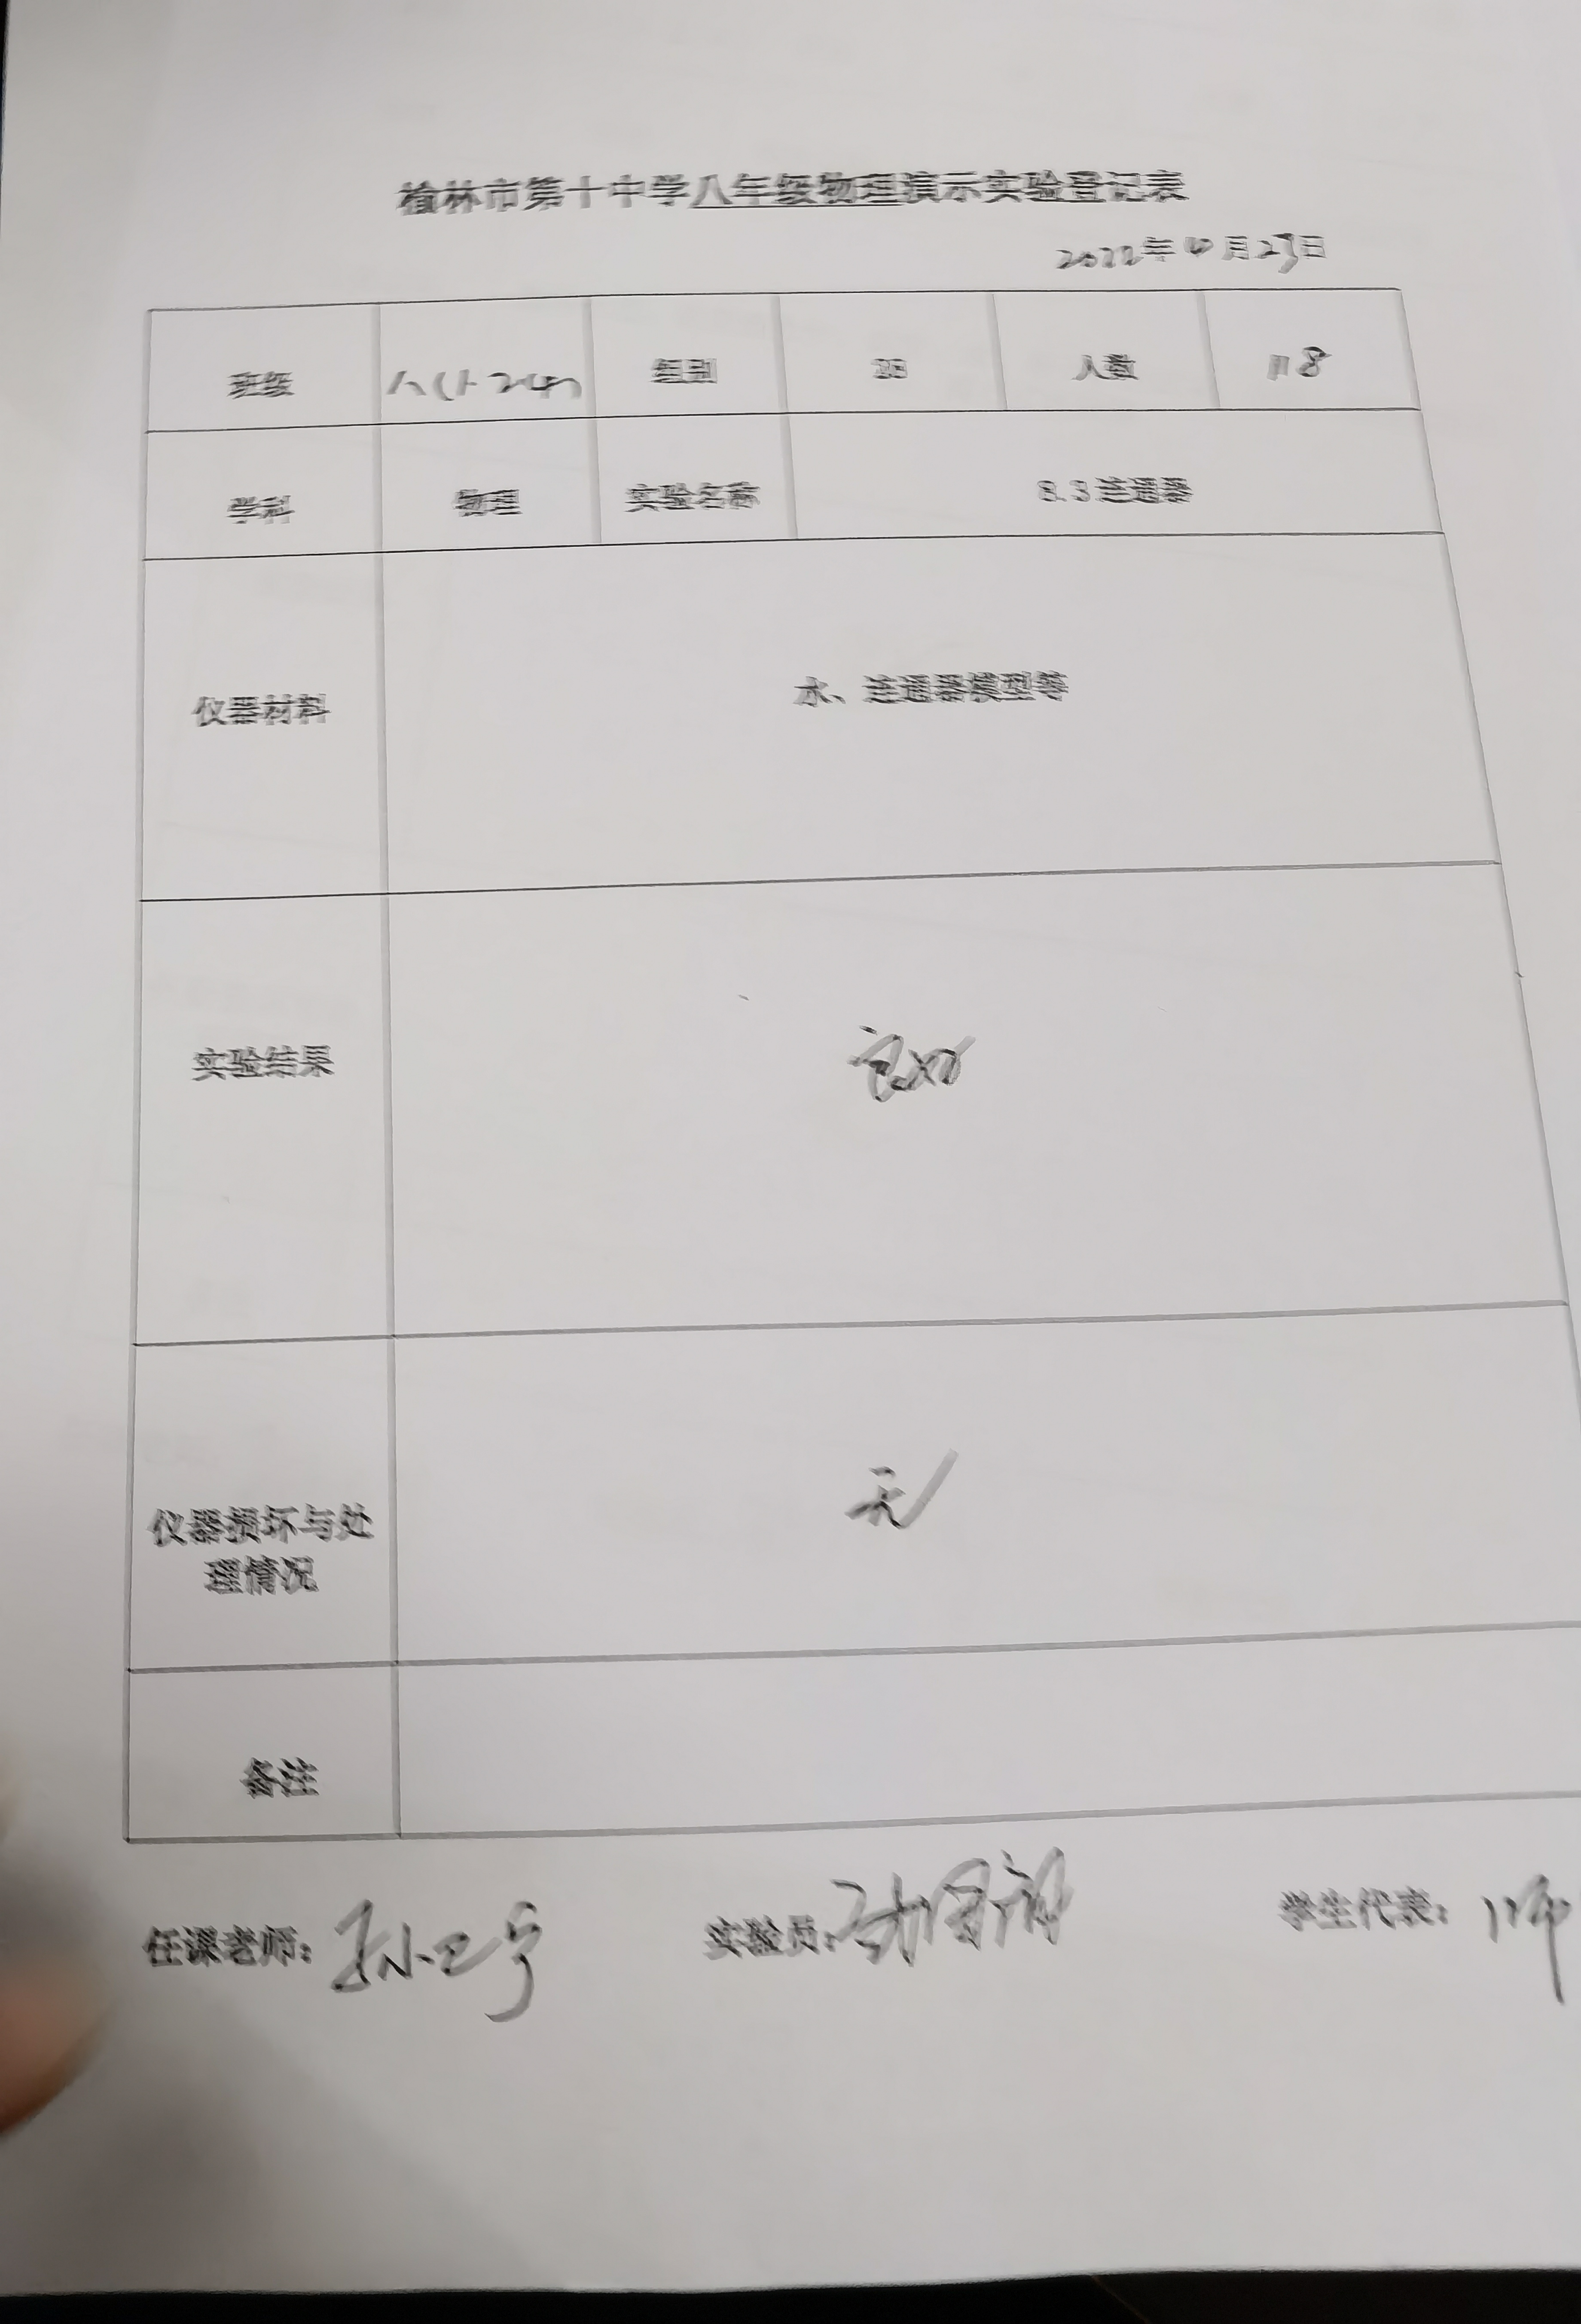 榆林市第十中学八年级物理演示实验登记表
2022年4月23日
班级 组别 28 人数 118
学科 物理 实验名称 8.3连通器
仪器材料 水、连通器模型等
实验结果 良好
仪器损坏与处
理情况 无
备注
任课老师：
实验员：
学生代表：